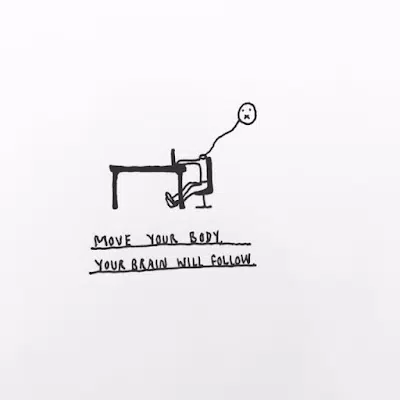 MOVE YOUR BODY.
YOUR BRAIN WILL FOLLOW.